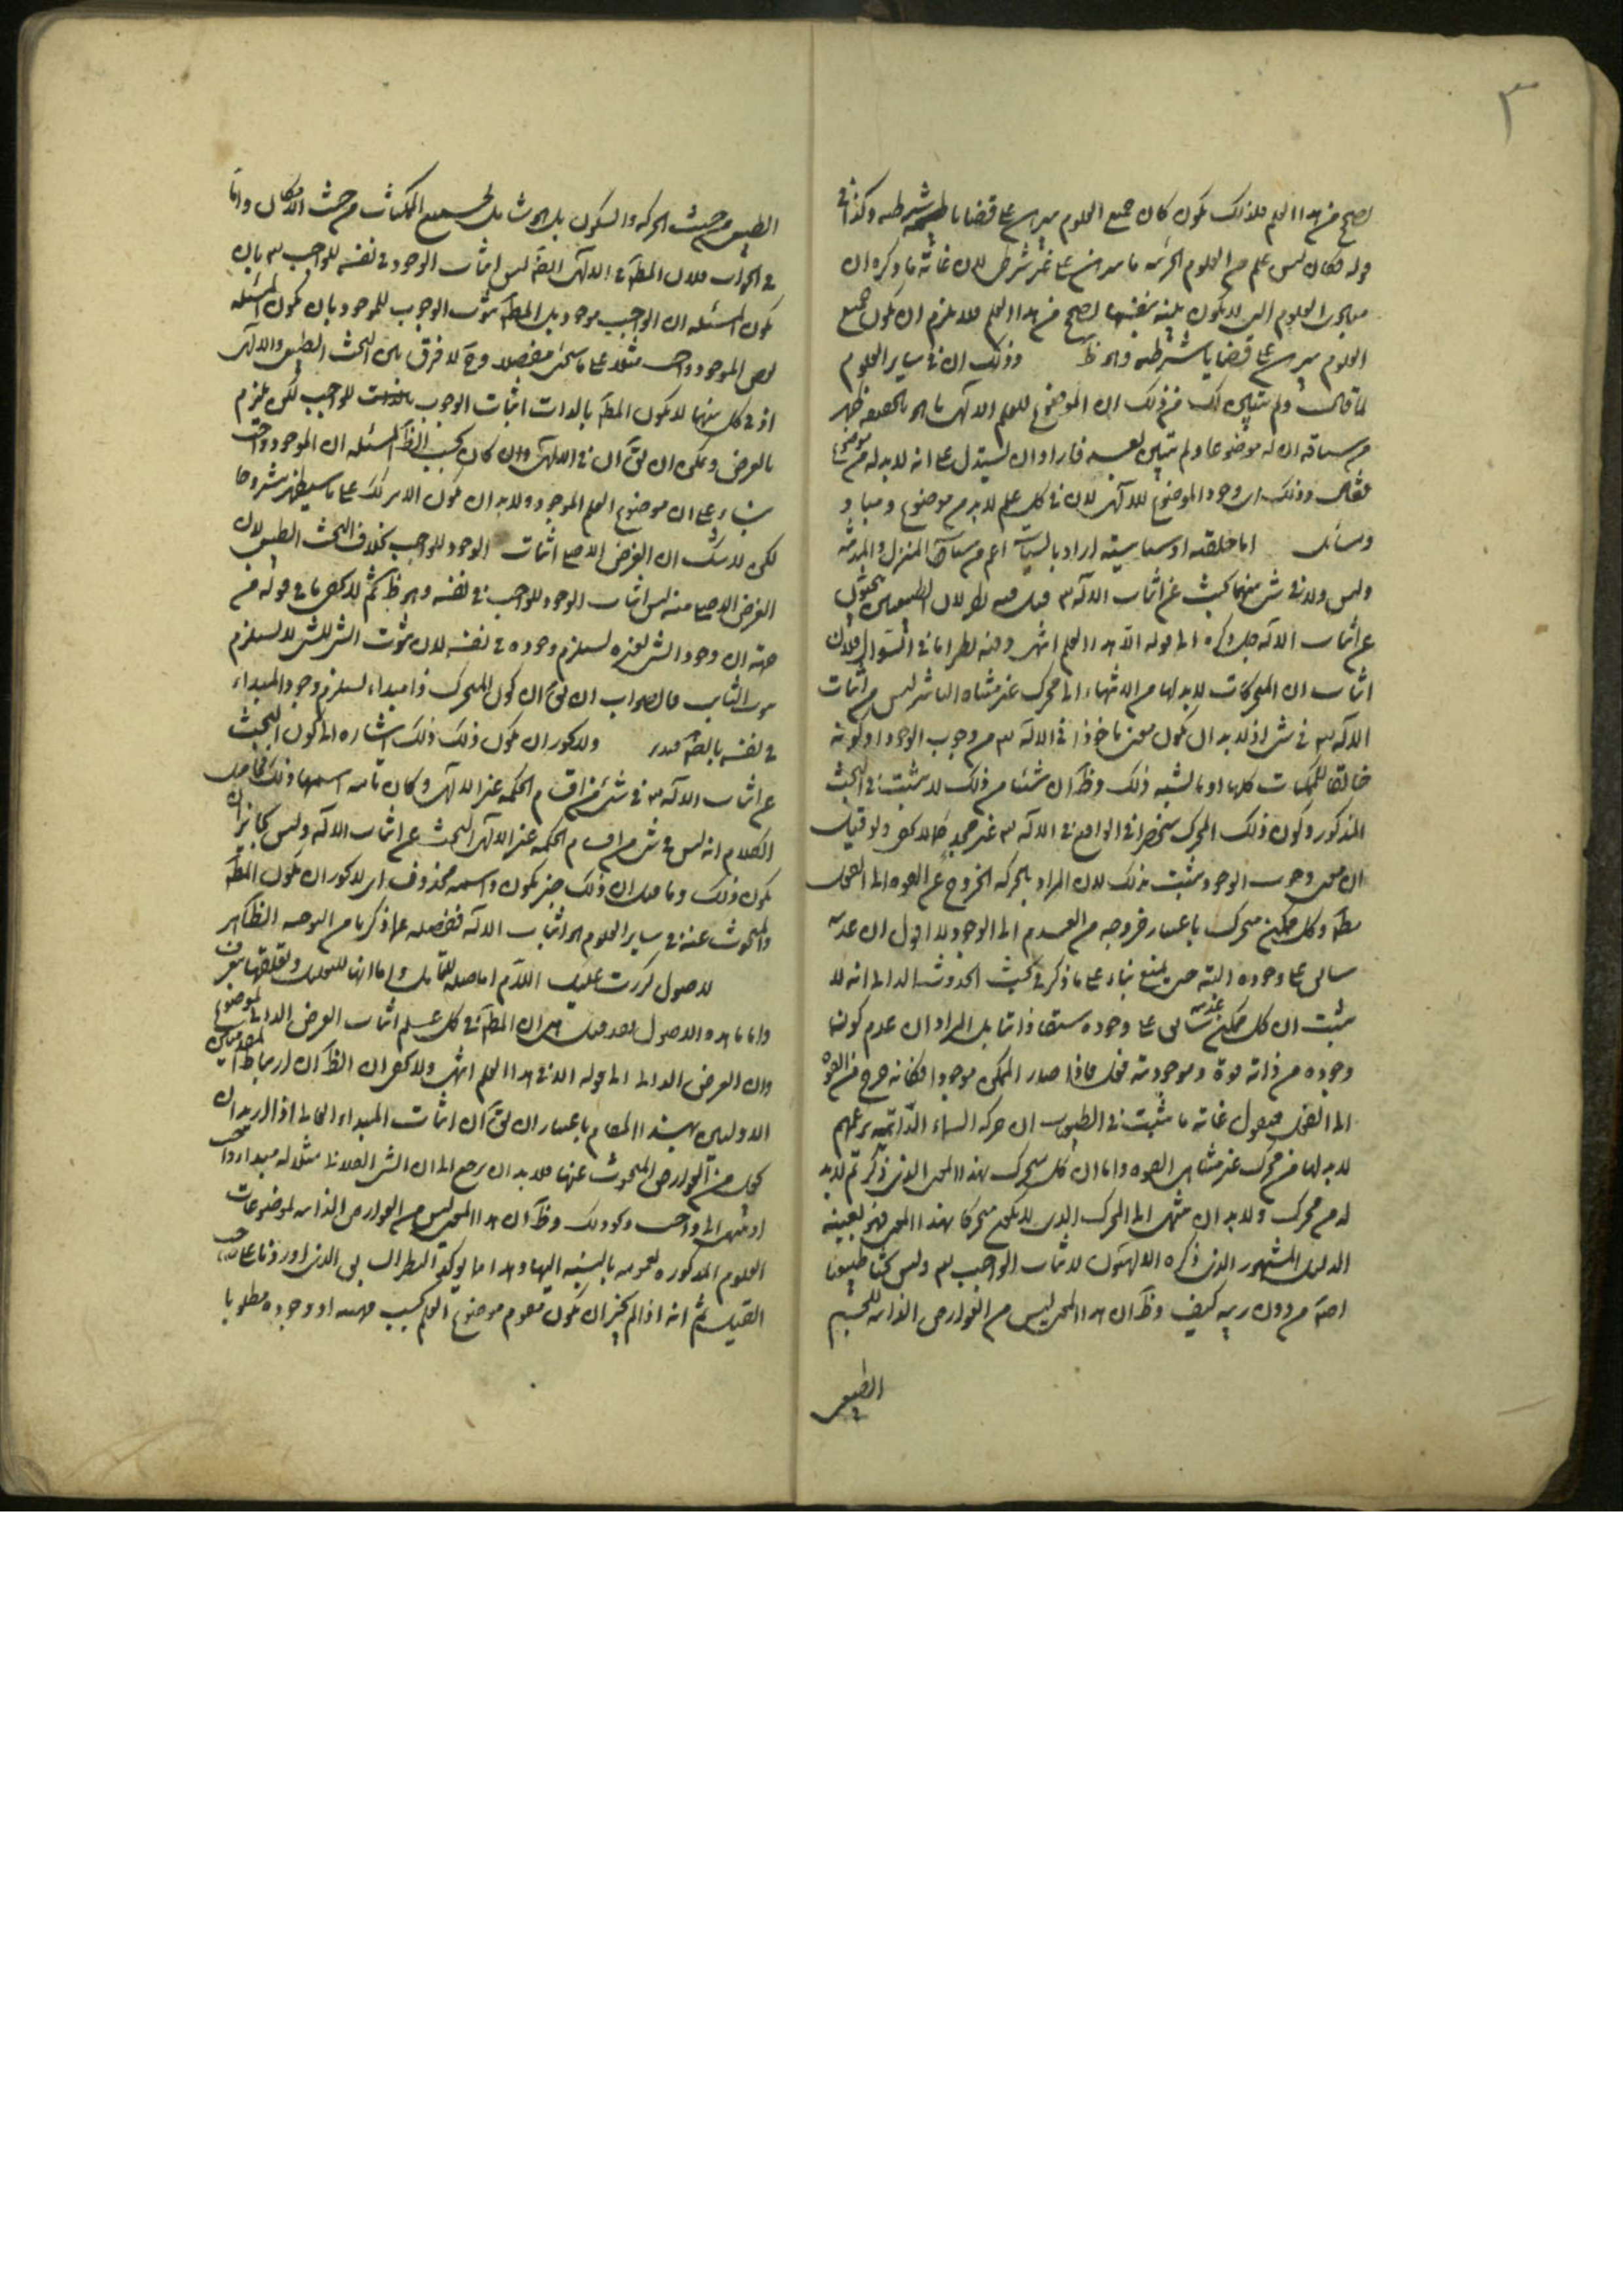 ٣
يصح في هذا العلم فلذلك يكون كان جميع العلوم يبرهن على قضايا شرطيه وكذا في
قوله فكان ليس علم من العلوم الجزئيه ما يبرهن على غير شرطى لان غاية ما ذكره ان
العلوم التى لا يكون بينة بنفسها يصح في هذا العلم فلا يلزم ان يكون جميع
العلوم يبرهن على قضايا شرطيه وهو ظ وذلك ان في ساير العلوم
لما قال ولم يتبين لك من ذلك ان الموضوع للعلم الالهى ما هو بالحقيقه ظهر
من سياقه ان له موضوعا ولم يتبين بعد فاراد ان يستدل على انه لا بد له من موضوع
فقال وذلك اى وجود الموضوع للالهى لان في كل علم لا بد من موضوع ومباد
ومسائل اما خلقيه او سياسيته اراد بالسياسة اعم من سياسة المنزل والمدينه
وليس ولا في شئ منها بحث عن اثبات الاله قيل فيه نظر لان الطبيعيين يبحثون
عن اثبات الاله جل ذكره الى قوله الا هذا العلم انتهى وفيه نظر اما في السؤال فلان
اثبات ان المتحركات لا بد لها من الانتهاء الى محرك غير متناه التاثير ليس من اثبات
الاله في شئ اذ لا بد ان يكون معنى ماخوذا في الاله من وجوب الوجود او كونه
خالقا للممكنات كلها او ما يشبه ذلك وظ ان شيئا من ذلك لا يثبت في البحث
المذكور وكون ذلك المحرك منحصرا في الواقع في الاله غير مجد كما لا يخفى ولو قيل
ان معنى وجوب الوجود يثبت بذلك لان المراد بالحركه الخروج عن القوه الى الفعل
مطلقا وكل ممكن متحرك باعتبار خروجه من العدم الى الوجود لا اقول ان عدمه
سابق على وجوده البته حتى يمنع بناء على ما ذكر في بحث الحدوث الذاتى انه لا
يثبت ان كل ممكن عدمه سابق على وجوده سبقا ذاتيا بل المراد ان عدم كونها
وجوده من ذاته قوة وموجوديته فعل فاذا صار الممكن موجودا فكانه خرج من القوه
الى الفعل فنقول غاية ما يثبت في الطبيعى ان حركه السماء الذاتيه بزعمهم
لا بد لها من محرك غير متناهى القوه واما ان كل متحرك بهذا المعنى الذى ذكرتم لا بد
له من محرك ولا بد ان ينتهى الى المحرك الذى لا يكون متحركا بهذا المعنى فهو بعينه
الدليل المشهور الذى ذكره الالهيون لاثبات الواجب وليس بحثا طبيعيا
اصلا من دون ريبه كيف وظ ان هذا المعنى ليس من العوارض الذاتيه للجسم
الطبيعى
الطبيعى من حيث الحركه والسكون بل هو شامل لجميع الممكنات من حيث الامكان واما
في الجواب فلان المط في الالهى ايضا ليس اثبات الوجود في نفسه للواجب بان
يكون المسئله ان الواجب موجود بل المط ثبوت الوجوب للموجود بان يكون المسئله
بعض الموجود واجب مثلا على ما سيجئ مفصلا وح لا فرق بين البحث الطبيعى والالهى
اذ في كل منهما لا يكون المط بالذات اثبات الوجود للواجب لكن يلزم
بالعرض ويمكن ان يق ان في الالهى وان كان بحسب الظ المسئله ان الموجود واجب
بناء على ان موضوع العلم الموجود ولا بد ان يكون الامر كذلك على ما سيظهر مشروحا
لكن لا شك ان الغرض الاصلى اثبات الوجود للواجب بخلاف البحث الطبيعى لان
الغرض الاصلى منه ليس اثبات الوجود للواجب في نفسه وهو ظ ثم لا يخفى ما في قوله من
جهة ان وجود الشئ لغيره يستلزم وجوده في نفسه لان ثبوت الشئ للشئ لا يستلزم
ثبوت الثابت فالصواب ان يق ان كون المتحرك ذا مبداء يستلزم وجود المبداء
في نفسه بالضرورة ولا يجوز ان يكون ذلك ذلك اشاره الى كون البحث
عن اثبات الاله في شئ من اقسام الحكمه غير الالهى وكان تامه اسمها ذلك فحاصل
الكلام انه ليس في شئ من اقسام الحكمه غير الالهى البحث عن اثبات الاله وليس بجايز ان
يكون ذلك وما قيل ان ذلك خبر يكون واسمه محذوف اى لا يجوز ان يكون المط
والمبحوث عنه في ساير العلوم هو اثبات الاله فتفضله عما ذكرنا من التوجيه الظاهر
لاصول كررت عليك اللام اما صله للتامل واما انها للتعليل وتعلقها بتعرف
واما ما هذه الاصول فقد قيل هى ان المط في كل علم اثبات العرض الذاتى لموضوعه
وان العرض الذاتى الى قوله الا في هذا العلم انتهى ولا يخفى ان الظ ان ارتباط المقدمتين
الاوليين بهذا المقام باعتبار ان يق ان اثبات المبداء الخالق اذا اريد ان
يجعل من العوارض المبحوث عنها فلا بد ان يرجع الى ان الشئ الفلانى مثلا له مبداء واجب
او ينتهى الى واجب ونحو ذلك وظ ان هذا المعنى ليس من العوارض الذاتيه لموضوعات
العلوم المذكوره لعمومه بالنسبه اليها وهذا مما يؤكد النظر الذى اوردنا على
القيل ثم انه اذا لم يجز ان يكون مقوم موضوع العلم بحسب مهيته او وجوده مطلوبا